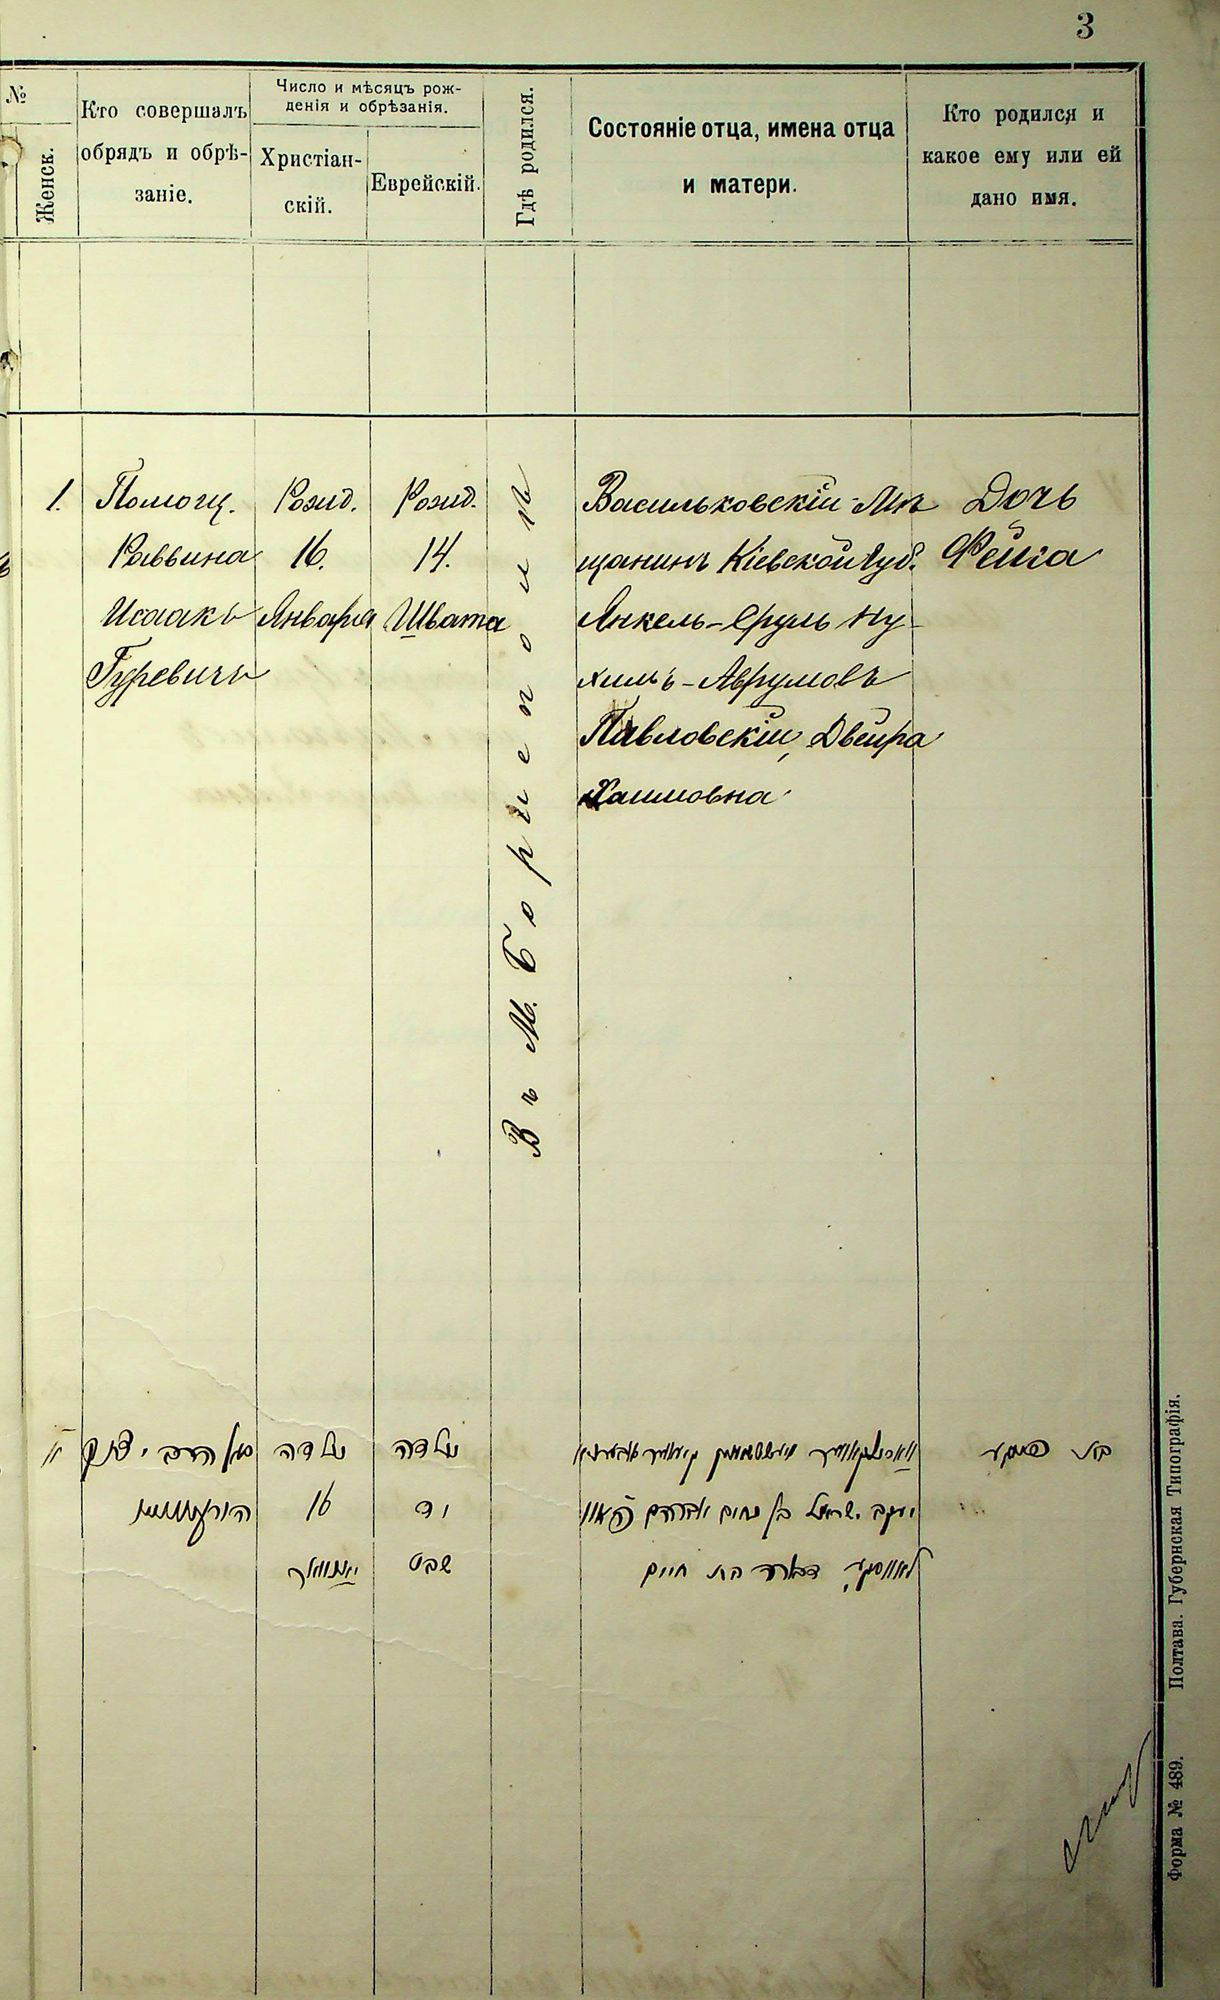 3
№
Женск.
Кто совершалъ
обрядъ и обрѣ-
заніе.
Число и мѣсяцъ рож-
денія и обрѣзанія.
Христіан-
скій.
Еврейскій.
Гдѣ родился.
Состояніе отца, имена отца
и матери.
Кто родился и
какое ему или ей
дано имя.
1.
Помощ.
Раввина
Исаакъ
Гуревичъ
Рожд.
16.
Января
Рожд.
14.
Швата
Въ М. Борисполѣ
Васильковскій Мѣ
щанинъ Кіевской Губ.
Янкель-Сруль Ну-
химъ-Аврумовъ
Павловскій, Двейра
Хаимовна
Дочь
Фейга
הרב יצחק
נולדה
16
יאנוואר
נולדה
יד
שבט
יעקב ישראל בן נחום אברהם
בת חיים
בת
Полтава. Губернская Типографія.
Форма № 489.